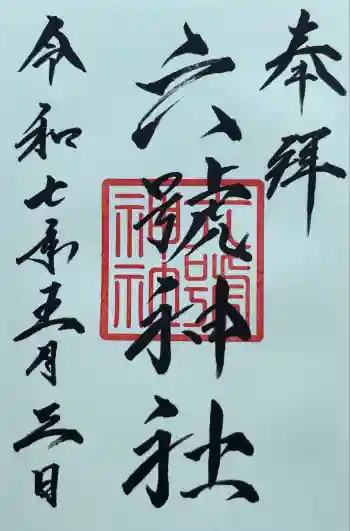 奉拜
六號神社
六號神社
令和七年五月三日